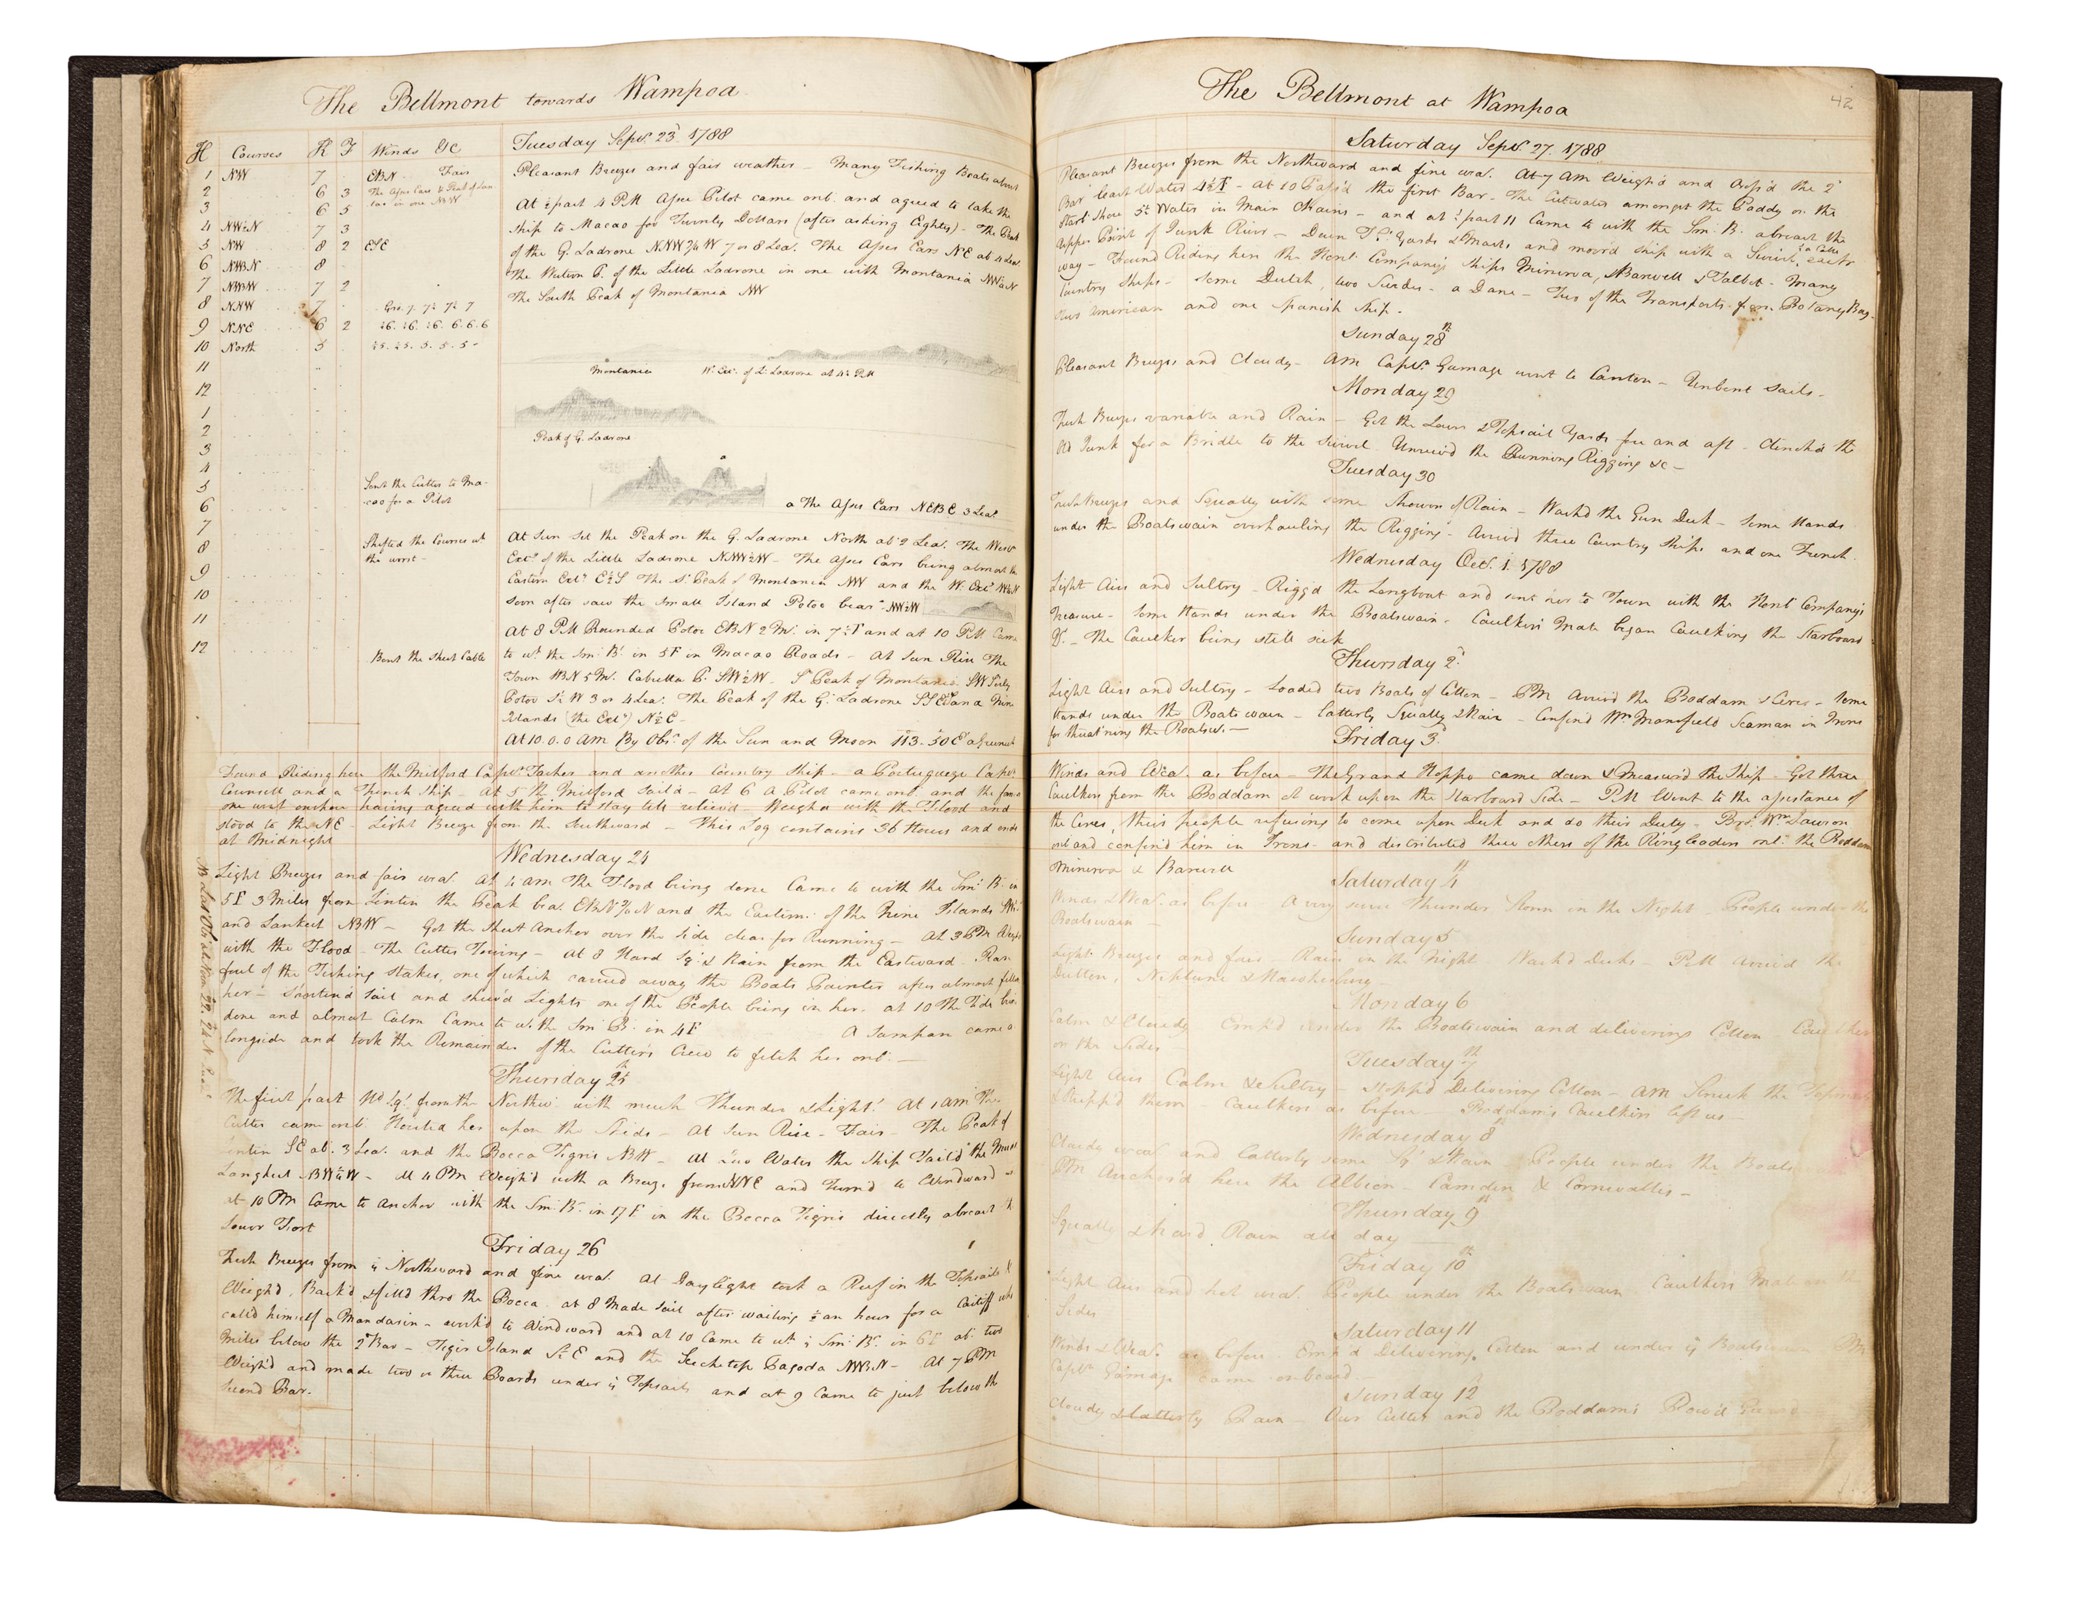 The Bellmont towards Wampoa
H Courses K F Winds &c
Tuesday Sepr. 23d. 1788
1 NW 7 EBN Fair
2 6 3 The Asses Ears & Peak of Lan
3 6 5 in one NBW
4 NWbN 7 3
5 NW 8 2 ESE
6 NWBN 8
7 NBW 7 2
8 NNW 7
9 NNE 6 2
10 North 5
11
12
1
2
3
4
5
6
7
8
9
10
11
12
Sent the Cutter to Ma-
-cao for a Pilot
Shifted the Courses at
the worst -
Bent the Sheet Cable
Pleasant Breezes and fair weather - Many Fishing Boats about
At ½ past 4 PM Asses Pilot came onb. and agreed to take the
Ship to Macao for Twenty Dollars (after asking Eighty) - The Peak
of the G. Ladrone NNW¾W 7 or 8 Lea. The Asses Ears NE ab 4 Lea.
The Western P. of the Little Ladrone in one with Montania
The South Peak of Montania NW
Montania W. Ext. of L. Ladrone at 4 PM
Peak of G. Ladrone
a The Asses Ears NEBE 3 Lea.
At Sun Set the Peak on the G. Ladrone North ab 2 Lea. The West
Ext. of the Little Ladrone NNW½W - The Asses Ears being almost
Eastern Ext. E½S The S. Peak of Montania NW and the W. Ext.
Soon after saw the small Island Potoe bear. NW½W
At 8 PM Rounded Potoe EBN 2 M. in 7½F and at 10 PM Came
to wt. the Sm. Br. in 5F in Macao Roads - At Sun Rise The
Town WBN 5 M. Cabretta P. SW½W - S. Peak of Montania SW Sly
Potoe S½W 3 or 4 Lea. The Peak of the G. Ladrone SSE and a Nine
Islands (the Ext.) N½E -
At 10.0.0 AM By Obs. of the Sun and Moon 113..50 E Greenwich
Found Riding here the Milford Capt. Jackes and another Country Ship - a Portugueze
and a French Ship - At 5 the Milford Sail'd - At 6 a Pilot came onb. and the former
one went onshore having agreed with him to stay till reliev'd - Weigh'd with the Flood and
stood to the NE - Light Breeze from the Southward - This Log contains 36 Hours and ends
at Midnight
Wednesday 24
Light Breezes and fair wear. At 4 am The Flood being done Came to with the Sm. Br. in
5F 3 Miles from Lintin the Peak bea. EBN¾N and the Eastern. of the Nine Islands
and Lankeet NBW - Got the Sheet Anchor over the Side clear for Running - At 3 PM Weigh'd
with the Flood - The Cutter Towing - At 8 Hard Sqs. & Rain from the Eastward - Ran
foul of the Fishing Stakes, one of which carried away the Boats Painter after almost filling
her - Shorten'd sail and shew'd Lights one of the People being in her. at 10 The Tide being
done and almost Calm Came to wt. the Sm. Br. in 4F A Sampan came a
longside and took the Remainder of the Cutter's Crew to fetch her onb. -
Thursday 25
The first part Hd. Sqs. from the Northwd. with much Thunder & Light. At 1 am The
Cutter came onb. Hoisted her upon the Side - At Sun Rise - Fair - The Peak of
Lintin SE ab. 3 Lea. and the Bocca Tigris NBW - At Low Water the Ship Tail'd the Mud
Langkeet NBW½W - At 4 PM Weigh'd with a Breeze from NNE and Turn'd to Windward
at 10 PM Came to Anchor with the Sm. Br. in 17 F. in the Bocca Tigris directly abreast the
lower Fort
Friday 26
Fresh Breezes from ye Northward and fine wear. At Daylight took a Reef in the Topsails &
Weigh'd, Back'd & fill'd thro the Bocca. at 8 Made Sail after waiting ½ an hour for a Caitiff who
call'd himself a Mandarin - work'd to Windward and at 10 Came to wt. ye Sm. Br. in 6F ab. two
Miles below the 2d Bar - Tigris Island S½E and the Seechetep Pagoda NWBN - At 7 PM
Weigh'd and made two or three Boards under ye Topsails and at 9 Came to just below the
Second Bar.
The Bellmont at Wampoa
42
Saturday Sepr. 27. 1788
Pleasant Breezes from the Northward and fine wear. At 7 AM Weigh'd and Cross'd the 2d
Bar least Water 4½F - At 10 Pass'd the first Bar - The Cutwater amongst the Paddy on the
Starb. Shore 5¼ Water in Main Chains - and at ½ past 11 Came to with the Sm. Br. abreast the
upper Point of Junk River - Down T.G. Yards & Masts and moor'd Ship with a Swivel, each
way - Found Riding here the Hon. Company's Ships Minerva, Barwell & Talbot - Many
Country Ships - some Dutch, two Swedes - a Dane - Two of the Transports from Botany Bay -
Two American and one Spanish Ship -
Sunday 28th
Pleasant Breezes and Cloudy - AM Capt. Gamage went to Canton - Unbent Sails -
Monday 29
Fresh Breezes variable and Rain - Got the Lower & Topsail Yards fore and aft - Clinch'd the
Old Junk for a Bridle to the Swivel Unreev'd the Running Rigging &c -
Tuesday 30
Fresh Breezes and Squally with some Showers of Rain - Wash'd the Gun Deck - Some Hands
under the Boatswain overhauling the Rigging - Arriv'd three Country Ships and one French
Wednesday Octr. 1. 1788
Light Airs and Sultry - Rigg'd the Longboat and sent her to Town with the Hon. Company's
Treasure - Some Hands under the Boatswain - Caulkers Mate began Caulking the Starboard
Do. - The Caulker being still sick
Thursday 2d
Light Airs and Sultry - Loaded two Boats of Cotton - PM Arriv'd the Boddam & Ceres - Some
Hands under the Boatswain - Latterly Squally & Rain - Confin'd Wm. Mansfield Seaman in Irons
for threat'ning the Boatsw. -
Friday 3d
Winds and Wear. as before - The Grand Hoppo came down & Measur'd the Ship - Got three
Caulkers from the Boddam at work upon the Starboard Side - PM Went to the assistance of
the Ceres, their people refusing to come upon Deck and do their Duty - Bro. Wm. Lawson
onb. and confin'd him in Irons - and distributed three others of the Ringleaders onb. the Boddam
Minerva & Barwell
Saturday 4th
Winds & Wear. as before A very severe Thunder Storm in the Night - People under the
Boatswain -
Sunday 5
Light Breezes and fair Rain in the Night Wash'd Decks PM Arriv'd the
Dutton, Neptune & Hawkesbury
Monday 6
Calm & Cloudy Emp'd under the Boatswain and delivering Cotton Caulkers
on the Sides
Tuesday 7th
Light Airs Calm & Sultry - Stopp'd Delivering Cotton - AM Struck the Topmasts
& Stripp'd them - Caulkers as before - Boddam's Caulkers left us -
Wednesday 8th
Cloudy wear. and latterly some Sqs. & Rain People under the Boats.
PM Anchor'd here the Albion - Camden & Cornwallis -
Thursday 9th
Squally & hard Rain all day
Friday 10th
Light Airs and hot wear. People under the Boatswain Caulkers Mate on the
Sides
Saturday 11
Winds & Wear. as before Emp'd Delivering Cotton and under ye Boatswain PM
Capt. Gamage came onboard -
Sunday 12
Cloudy & latterly Rain - Our Cutter and the Boddam's Row'd Guard